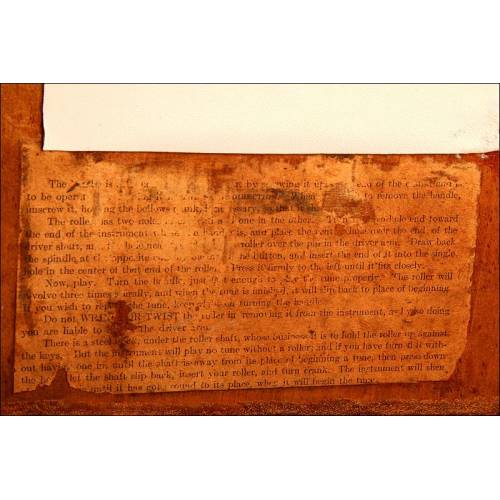 The is by it up end of the
to be opera when to remove the handle,
unscrew it, holding the bellows crank, if necessary, so that
The roller has two holes one in the other. Turn end toward
the end of the instrument is, and place the over the end of the
driver shaft, and roller over the pin in the driver arm. Draw back
the spindle, at the opposite the button, and insert the end of it into the single
hole in the center of that end of the roller. Press it firmly to the left until it fits closely.
Now, play. Turn the handle, just fast enough to the tune properly. The roller will
revolve three times usually, and when the tune is finished, it will slip back to place of beginning.
If you wish to the tune, keep right on turning the handle.
Do not WRENCH OR TWIST the roller in removing it from the instrument, as by so doing
you are liable to the driver arm.
There is a steel under the roller shaft, whose business it is to hold the roller up against
the keys. But the instrument will play no tune without a roller; and if you have turned it with-
out having one in, until the shaft is away from its place of beginning a tune, then press down
the let the shaft slip back, insert your roller, and turn crank. The instrument will then
until it has got round to its place, when it will begin the tune.